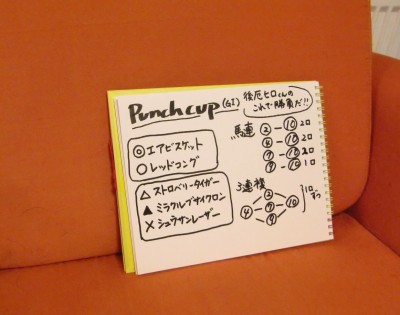 Punch cup (GI)
後厄ヒロくんの
これで勝負だ!!
◎エアビスケット
○レッドコング
△ストロベリータイガー
▲ミラクルプサイクロン
×シュウサンレーザー
馬連
②-⑩ 2口
④-⑩ 2口
⑦-⑩ 2口
⑨-⑩ 1口
3連複
②
④-⑦-⑩
⑨
1口
ずつ